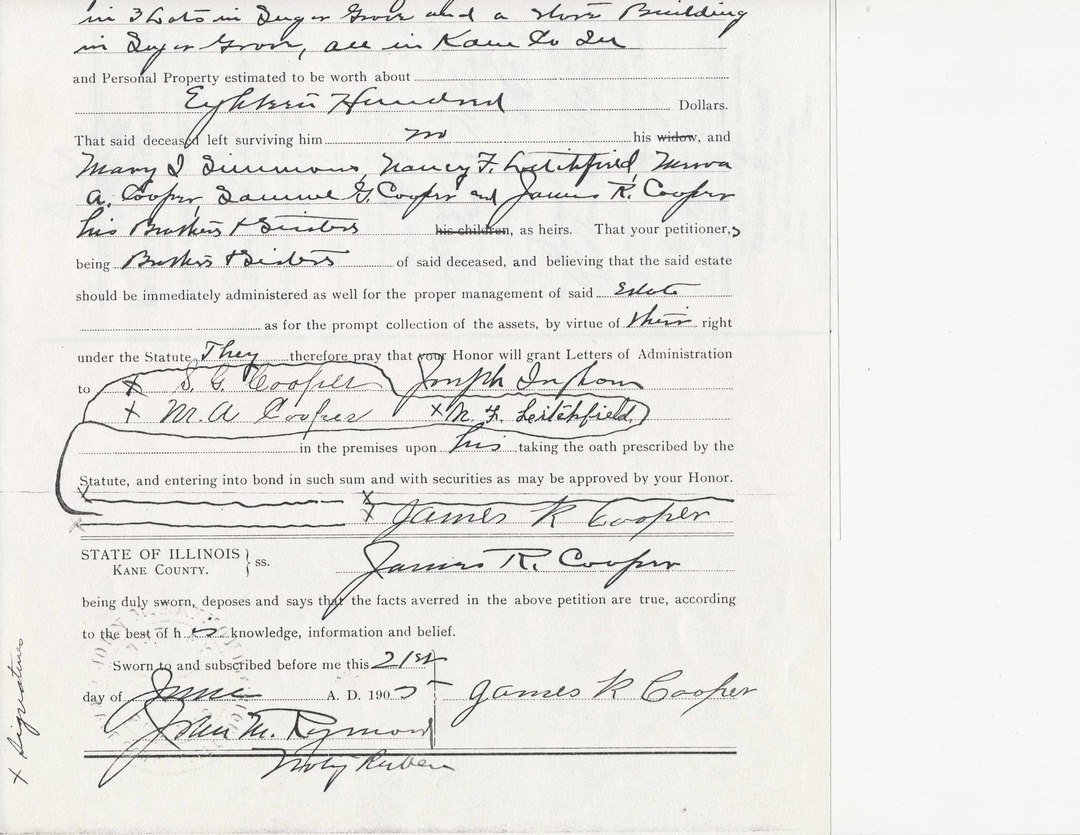 in 3 Lots in Sugar Grove and a Store Building
in Sugar Grove, all in Kane Co Ill
and Personal Property estimated to be worth about
Eighteen Hundred Dollars.
That said deceased left surviving him no his widow, and
Mary I Simmons, Nancy F. Leitchfield, Minerva
A. Cooper, Samuel G. Cooper and James R. Cooper
his Brothers & Sisters his children, as heirs. That your petitioner,s
being Brothers & Sisters of said deceased, and believing that the said estate
should be immediately administered as well for the proper management of said Estate
as for the prompt collection of the assets, by virtue of their right
under the Statute They therefore pray that your Honor will grant Letters of Administration
to x S G Cooper Joseph Ingham
x M. A Cooper x N. F. Leitchfield.
in the premises upon his taking the oath prescribed by the
Statute, and entering into bond in such sum and with securities as may be approved by your Honor.
x x
x x James R Cooper
STATE OF ILLINOIS } ss.
KANE COUNTY.
James R. Cooper
being duly sworn, deposes and says that the facts averred in the above petition are true, according
to the best of h is knowledge, information and belief.
Sworn to and subscribed before me this 21st
day of June A. D. 190
James R Cooper
John M. Raymond
Notary Public
x Signatures